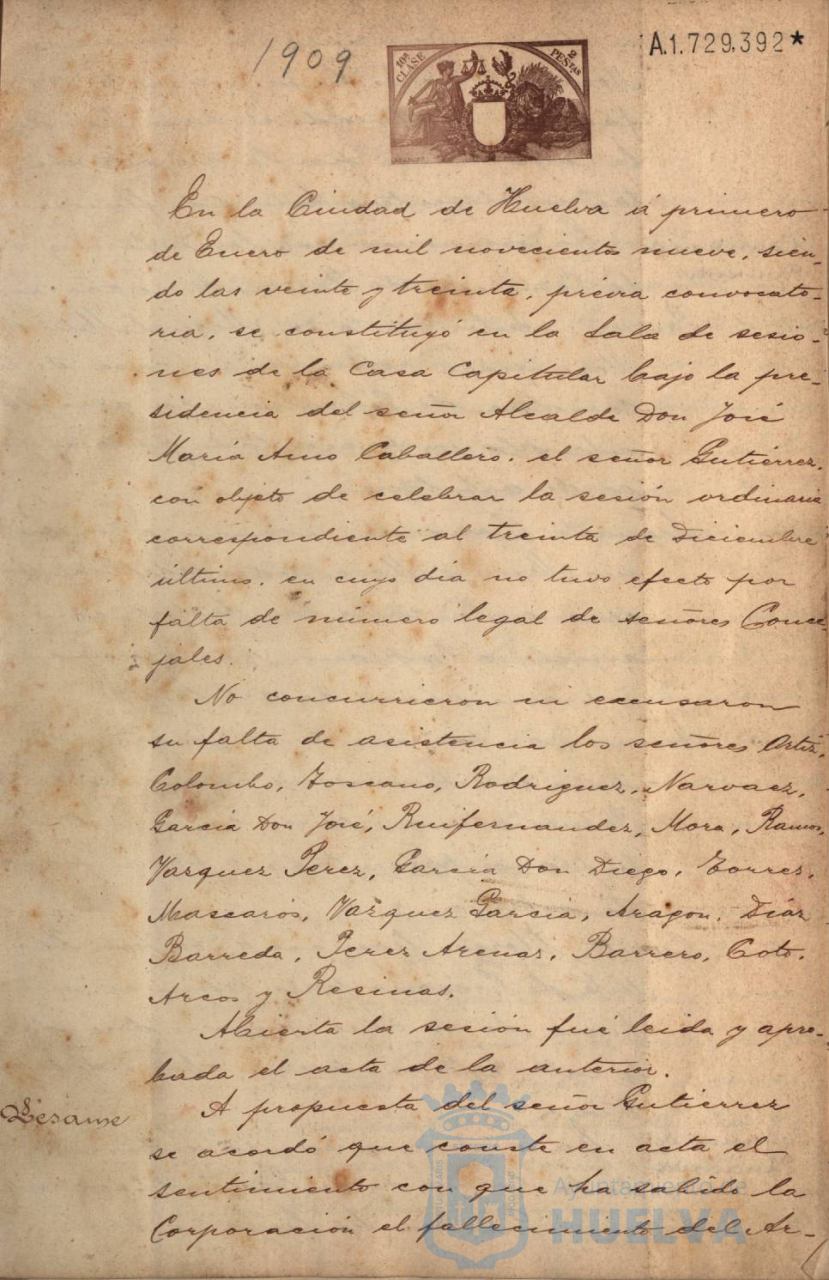 1909
10ª CLASE
2 PESETAS
A.1.729,392*
En la Ciudad de Huelva á primero
de Enero de mil novecientos nueve, sien-
do las veinte y treinta, prévia convocato-
ria, se constituyó en la Sala de sesio-
nes de la Casa Capitular bajo la pre-
sidencia del señor Alcalde Don José
María Amo Caballero, el señor Gutiérrez,
con objeto de celebrar la sesión ordinaria
correspondiente al treinta de Diciembre
último, en cuyo dia no tuvo efecto por
falta de número legal de señores Conce-
jales.
No concurrieron ni excusaron
su falta de asistencia los señores Ortiz,
Colombo, Toscano, Rodriguez, Narvaez,
Garcia Don José, Ruifernandez, Mora, Ramos,
Vazquez Perez, García Don Diego, Torres,
Mascarós, Vazquez Garcia, Aragon, Díaz
Barreda, Perez Arenas, Barrero, Coto,
Arcos y Resinas.
Abierta la sesión fué leida y apro-
bada el acta de la anterior.
Pésame
A propuesta del señor Gutierrez
se acordó que conste en acta el
sentimiento con que ha sabido la
Corporación el fallecimiento del Ar-
Ayuntamiento de
HUELVA